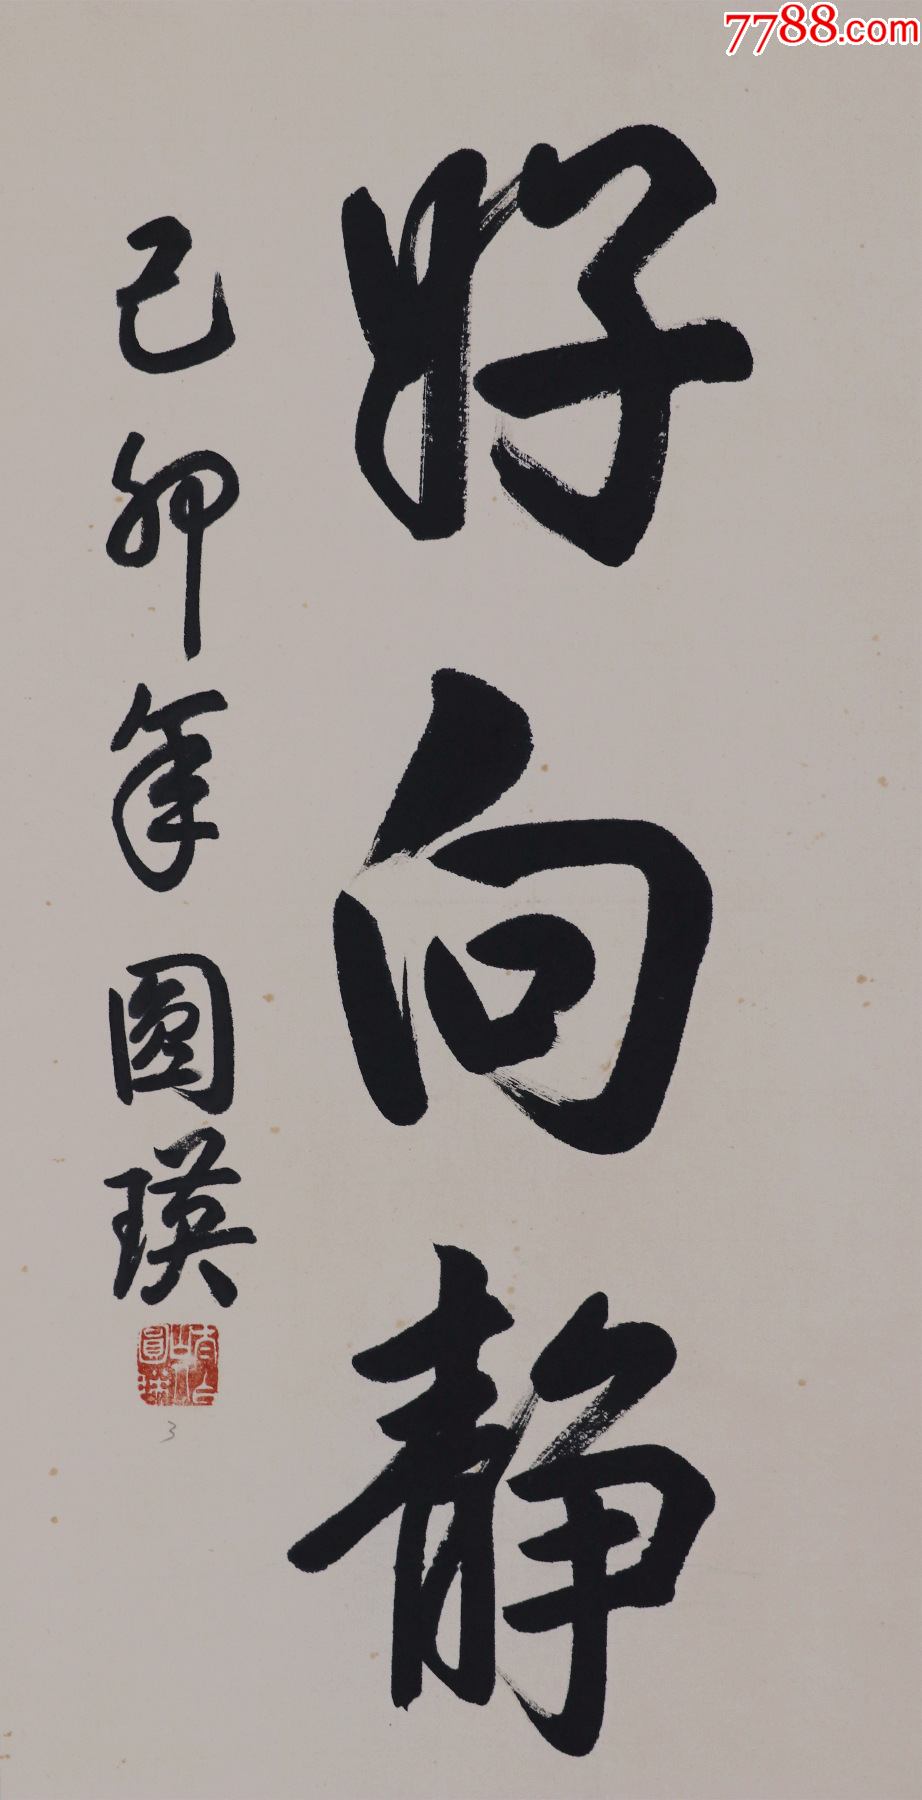 7788.com
好向静
己卯年 圆瑛
3